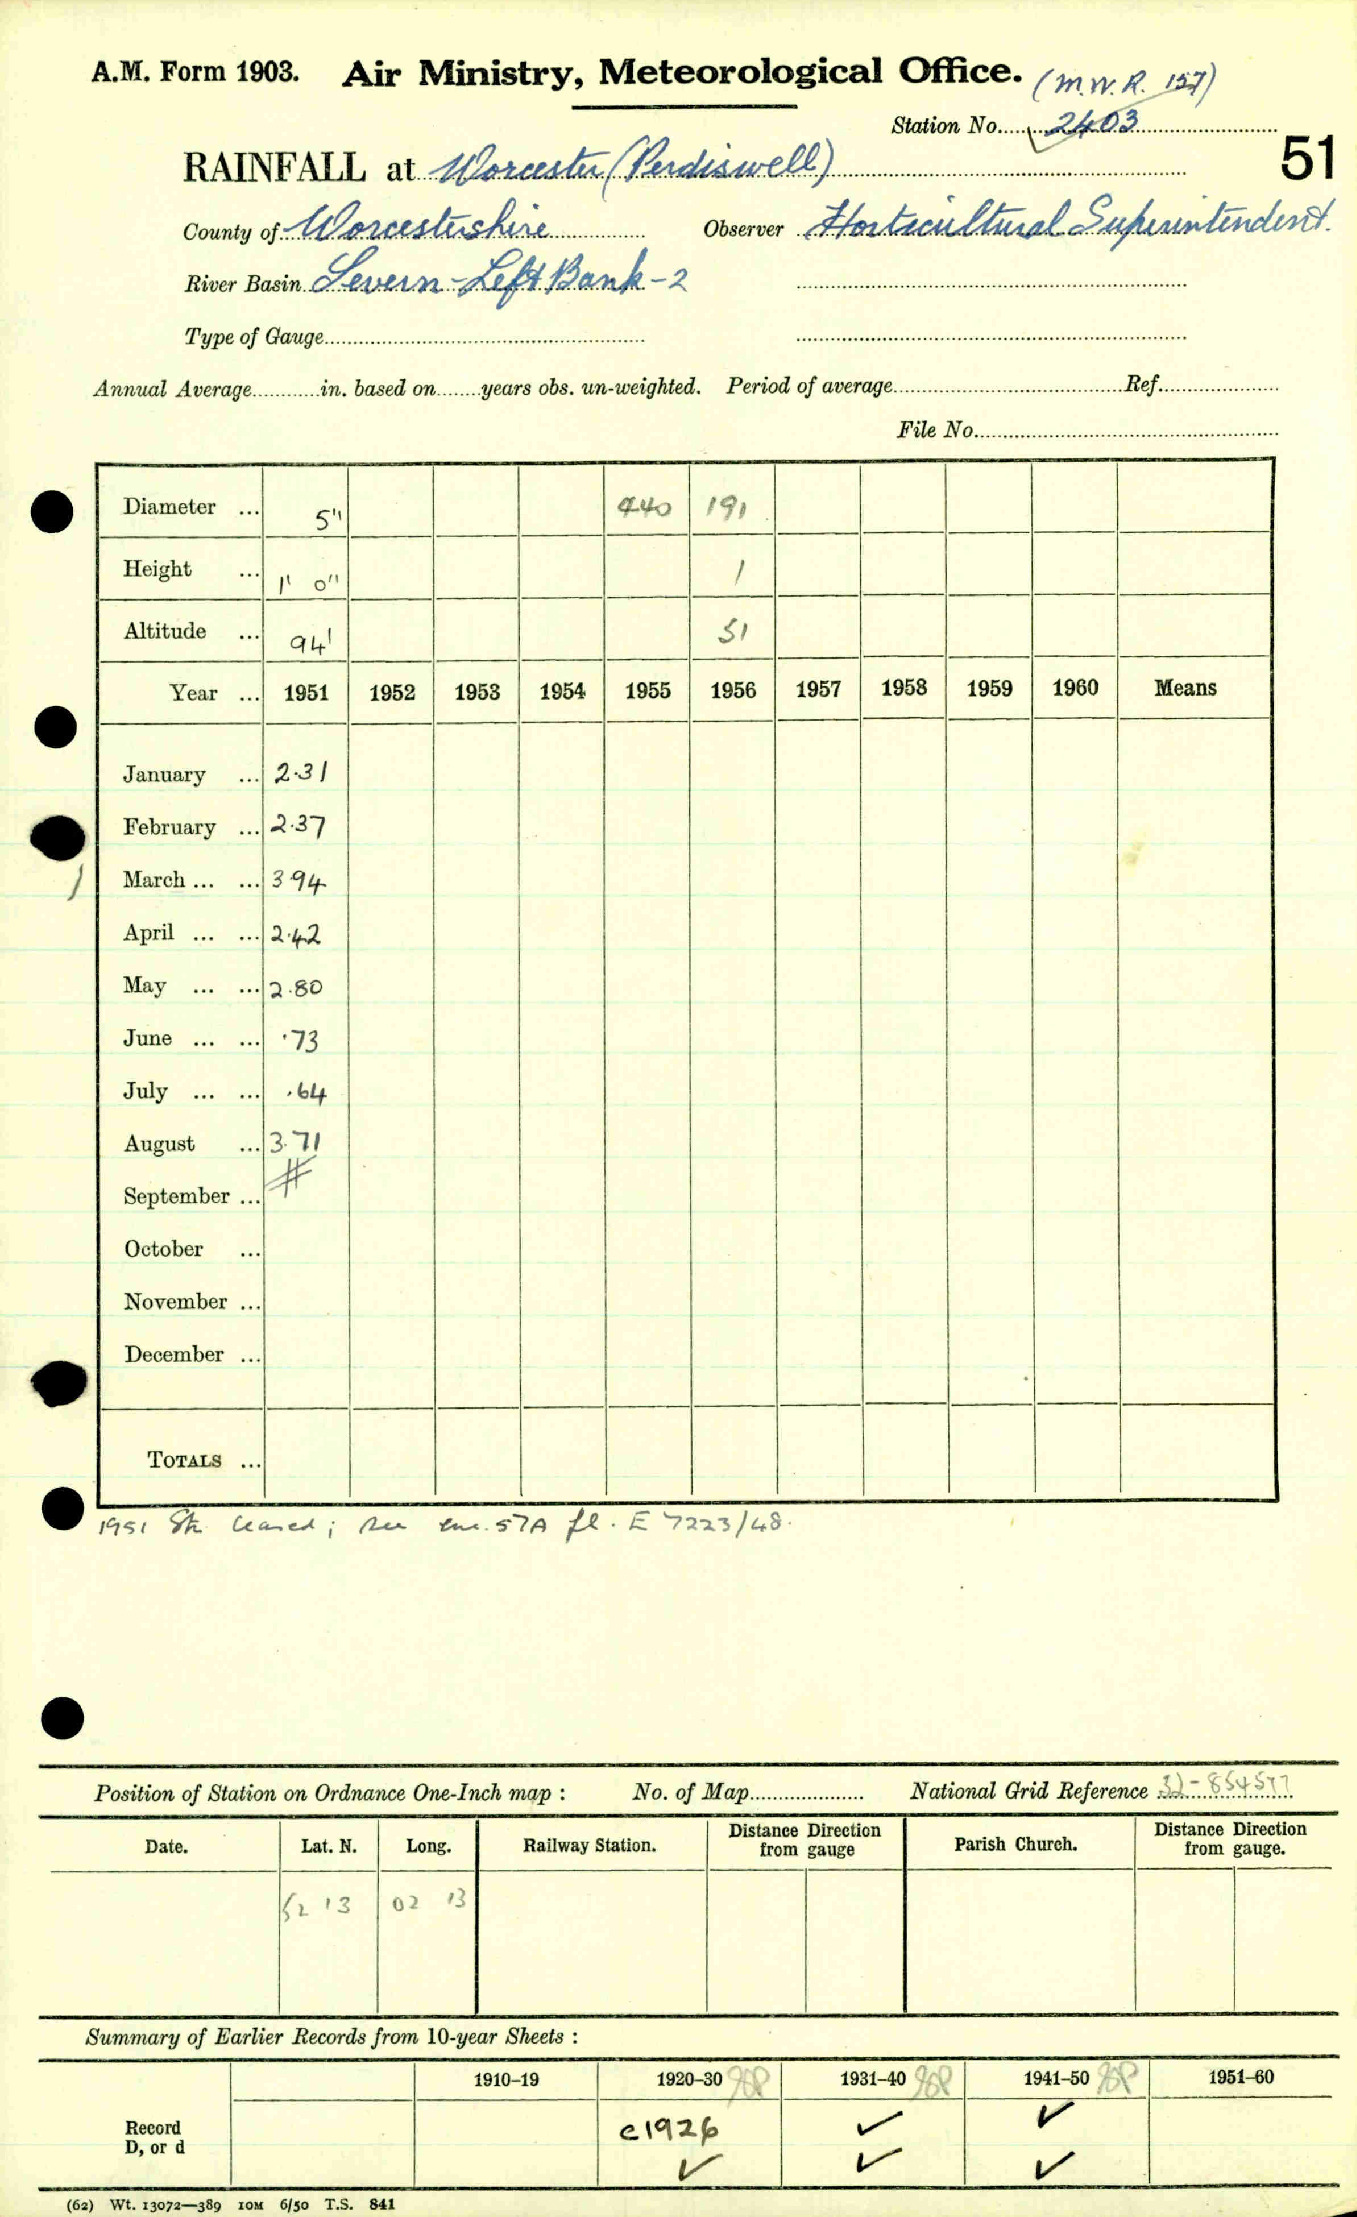 A.M. Form 1903. Air Ministry, Meteorological Office. (M.W.R. 157)
Station No. 2403
51
RAINFALL at Worcester (Perdiswell)
County of Worcestershire Observer Horticultural Superintendent.
River Basin Severn - Left Bank - 2
Type of Gauge
Annual Average in. based on years obs. un-weighted. Period of average Ref.
File No.
Diameter ... 5" 440 191
Height ... 1' 0" 1
Altitude ... 94' 51
Year ... 1951 1952 1953 1954 1955 1956 1957 1958 1959 1960 Means
January ... 2.31
February ... 2.37
1
March ... ... 3 94
April ... ... 2.42
May ... ... 2.80
June ... ... .73
July ... ... .64
August ... 3.71
#
September ...
October ...
November ...
December ...
TOTALS ...
1951 Stn ceased; see enc. 57A fl. E 7223/48.
Position of Station on Ordnance One-Inch map : No. of Map National Grid Reference 32-854577
Date. Lat. N. Long. Railway Station. Distance from Direction gauge Parish Church. Distance from Direction gauge.
52 13 02 13
Summary of Earlier Records from 10-year Sheets :
1910-19 1920-30 1931-40 1941-50 1951-60
Record c1926 ✓ ✓
D, or d ✓ ✓ ✓
(62) Wt. 13072—389 10M 6/50 T.S. 841